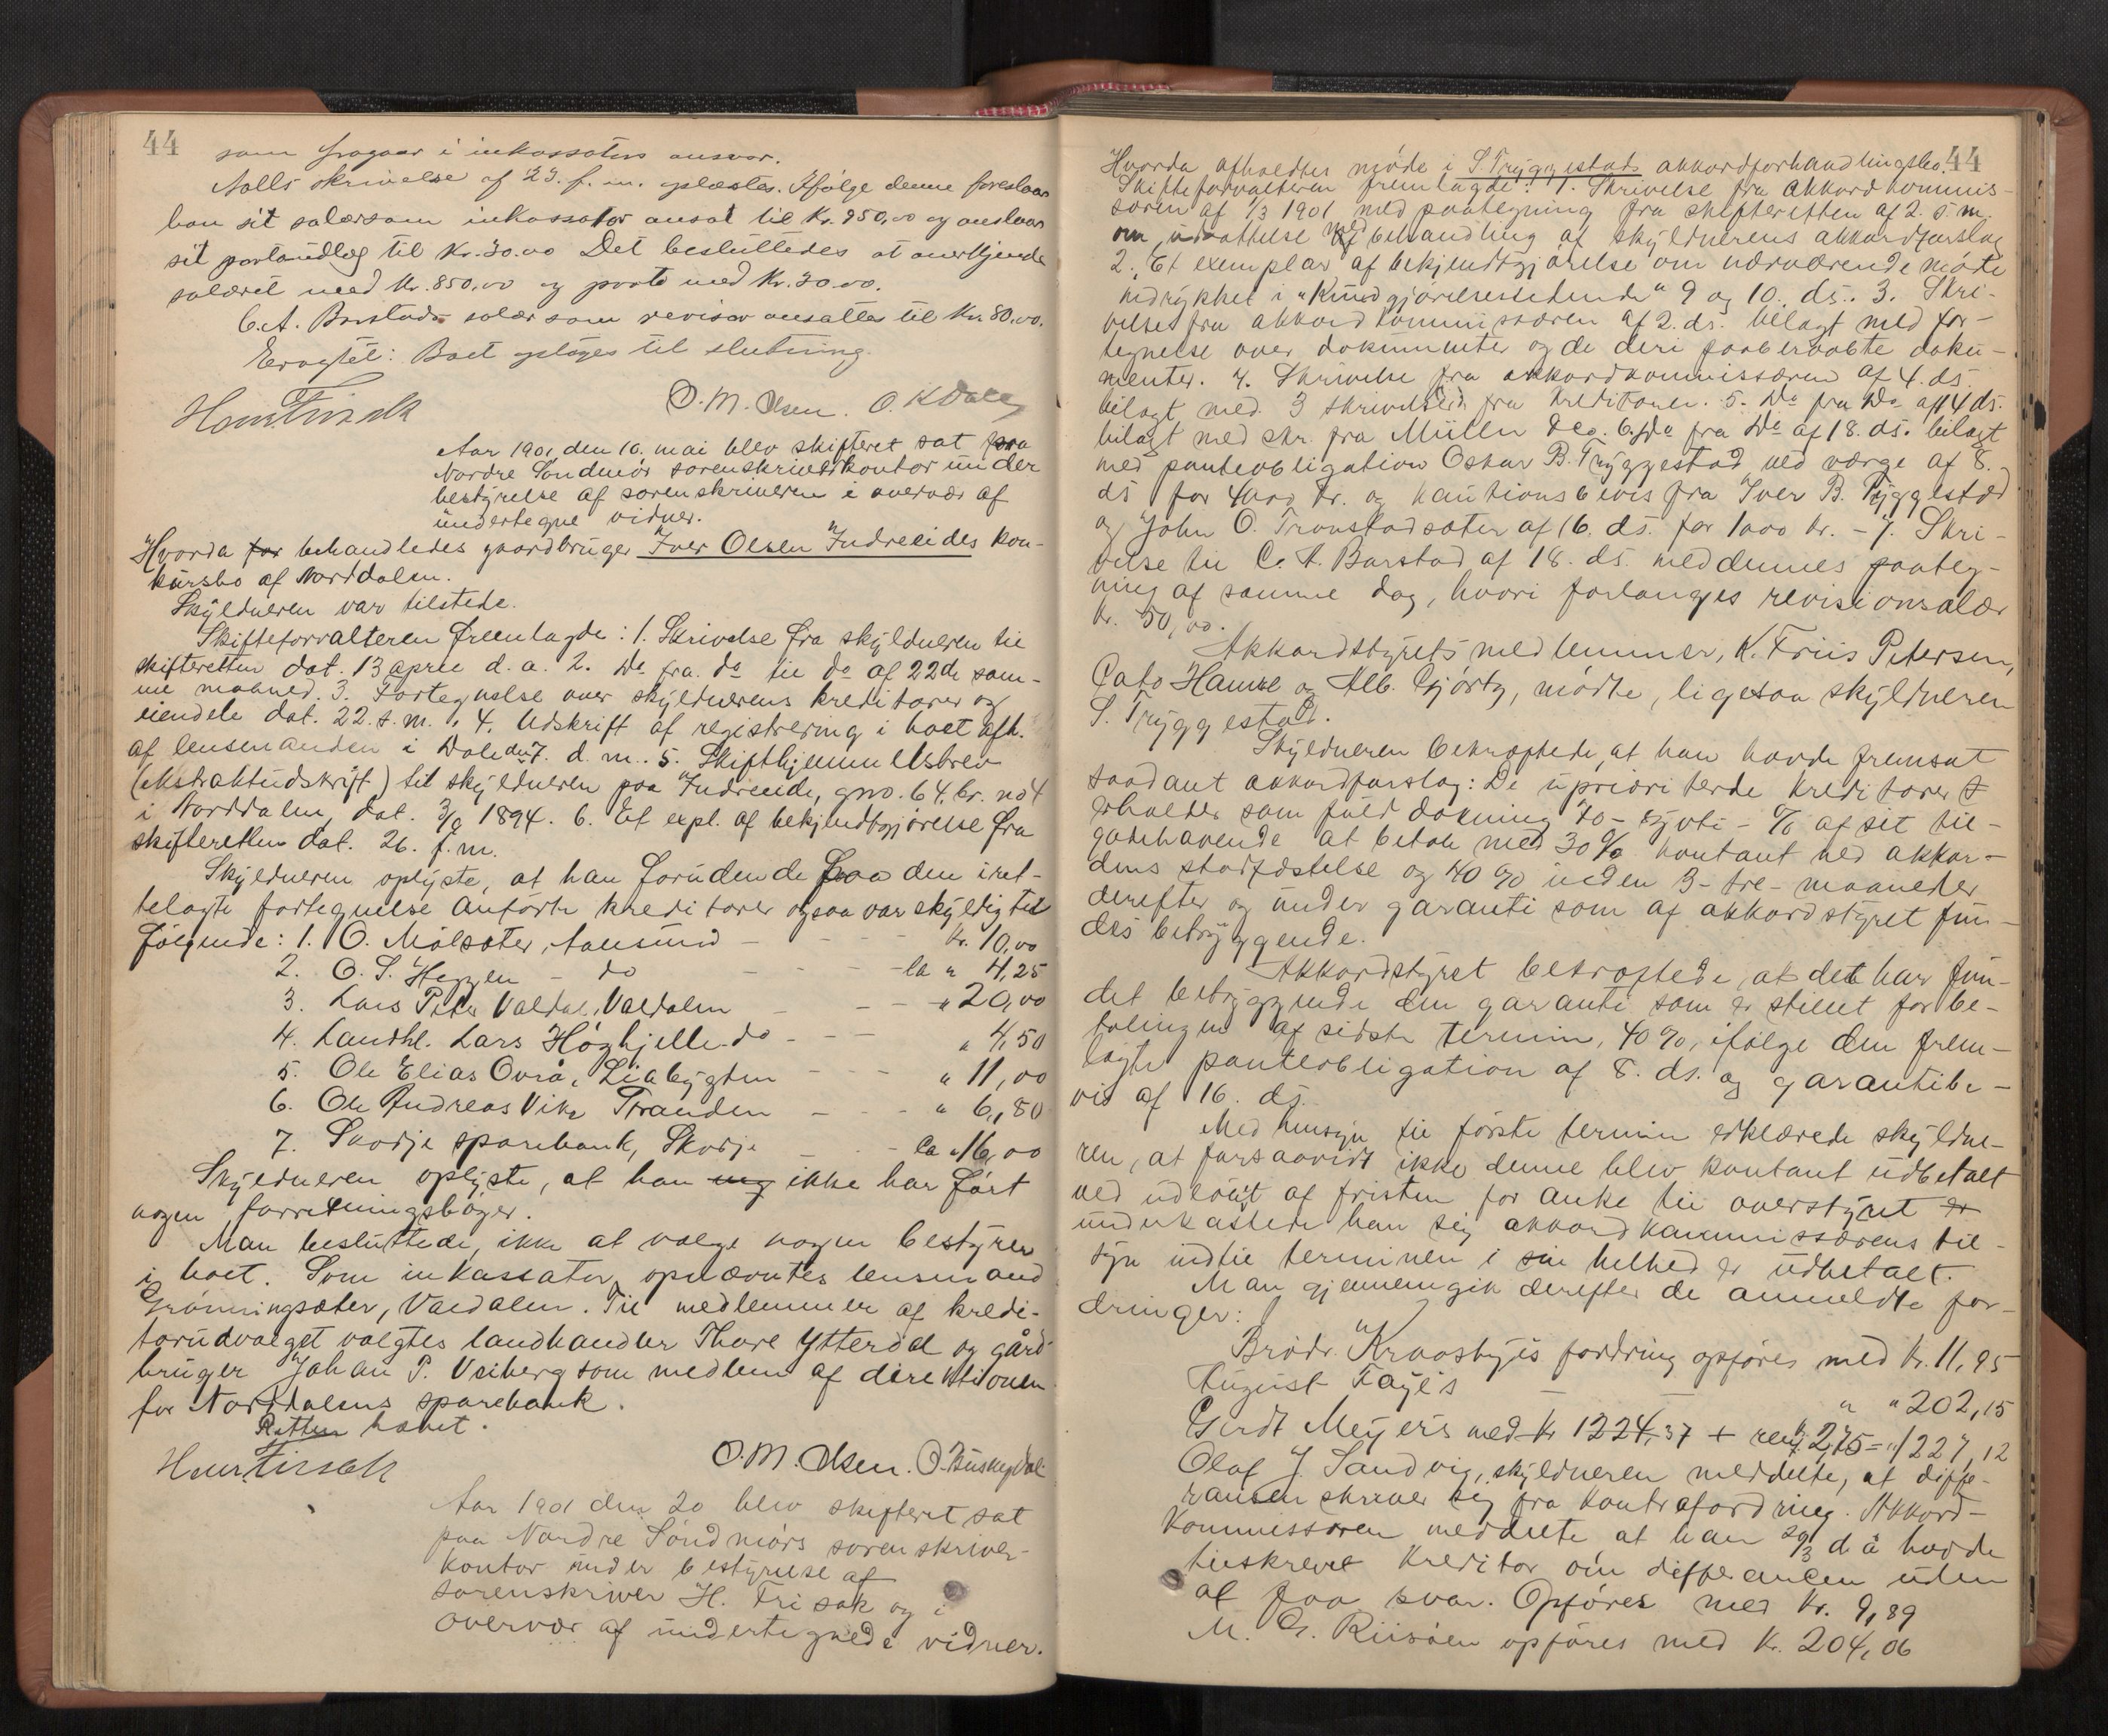 44
som fragaar i inkassators ansvar.
Aalls skrivelse af 23. f. m. oplæstes. Ifølge denne foreslaar
han sit salær som inkassator ansat til Kr. 950,00 og anslaar
sit portoudlæg til Kr. 30.00 Det besluttedes at anerkjende
salæret med Kr. 850,00 og porto med Kr. 30.00.
C. A. Barstads salær som revisor ansattes til Kr. 80,00.
Eragtet: Boet optages til slutning.
O. M. Olsen. O.
Aar 1901 den 10. mai blev skifteret sat paa
Nordre Søndmørs sorenskriverkontor under
bestyrelse af sorenskriveren i overvær af
undertegne vidner.
Hvorda for behandledes gaardbruger Iver Olsen Indreeides kon-
kursbo af Norddalen.
Skyldneren var tilstede.
Skifteforvalteren fremlagde: 1. Skrivelse fra skyldneren til
skifteretten dat. 13 april d. a. 2. Do fra do til do af 22de sam-
me maaned. 3. Fortegnelse over skyldnerens kreditorer og
eiendele dat. 22. s. m. 4. Udskrift af registrering i boet afh.
af lensmanden i Dale den 7. d. m. 5. Skifthjemmelsbrev
(ekstraktudskrift) til skyldneren paa Indreeide, gno. 64, br. no 4
i Norddalen, dat. 3/9 1894. 6. Et expl. af bekjendtgjørelse fra
skifteretten dat. 26. f. m.
Skyldneren oplyste, at han foruden de paa den iret-
telagte fortegnelse anførte kreditorer ogsaa var skyldig til
følgende: 1. O. Målsæter, Aalesund - - - Kr. 10,00
2. O. S. Heggen - do - - - ca " 4,25
3. Lars Peter Valdal, Valdalen - - - " 20,00
4. Landhl. Lars Høghjelle do - - - " 4,50
5. Ole Elias Overå, Liabygden - - - " 11,00
6. Ole Andreas Vike Stranden - - - " 6,80
7. Skodje sparebank, Skodje - - - ca " 16,00
Skyldneren oplyste, at han ikke har ført
nogen forretningsbøger.
Man besluttede, ikke at vælge nogen bestyrer
i boet. Som inkassator opnævntes lensmand
Grønningsæter, Valdalen. Til medlemmer af kredi-
torudvalget valgtes landhandler Thore Ytterdal og gård-
bruger Johan P. Veiberg som medlem af direktionen
for Norddalens sparebank.
Retten hævet.
O. M. Olsen.
Aar 1901 den 20 blev skifteret sat
paa Nordre Søndmørs sorenskriver-
kontor under bestyrelse af
sorenskriver H. Frisak og i
overvær af undertegnede vidner.
44
Hvorda afholdtes møde i S. Tryggestads akkordforhandlingsbo.
Skifteforvalteren fremlagde: 1. Skrivelse fra akkordkommis-
særen af 1/3 1901 med paategning fra skifteretten af 2. s. m.
om udsættelse med behandling af skyldnerens akkordforslag
2. Et exemplar af bekjendtgjørelse om nærværende møde
indrykket i "Kundgjørelsestidende" 9 og 10. ds. 3. Skri-
velse fra akkordkommissæren af 2. ds. bilagt med for-
tegnelse over dokumenter og de deri paaberaabte doku-
menter. 4. Skrivelse fra akkordkommissæren af 4. ds.
bilagt med 3 skrivelser fra kreditorer. 5. Do fra Do af 14 ds.
bilagt med skr. fra Müller & Co. 6. Do fra Do af 18. ds. bilagt
med panteobligation Oskar B. Tryggestad ved værge af 8.
ds for 4000 kr. og kautionsbevis fra Iver B. Tryggestad
og John O. Tronstadsæter af 16. ds. for 1000 kr. - 7. Skri-
velse til C. A. Barstad af 18. ds. med dennes paateg-
ning af samme dag, hvori forlanges revisionsalær
kr. 50,00.
Akkordstyrets medlemmer, K. Friis Petersen,
Cato Hamre og Alb. Gjørtz, mødte, ligesaa skyldneren
S. Tryggestad.
Skyldneren bekræftede, at han havde fremsat
saadant akkordforslag: De upriori terde kreditorer
erholder som fuld dækning 70 - sytti - % af sit til-
godehavende at betale med 30% kontant ved akkor-
dens stadfæstelse og 40% inden 3 - tre - maaneder
derefter og under garanti som af akkordstyret fun-
des betryggende.
Akkordstyret bekræftede, at det har fun-
det betryggende den garanti som er stillet for be-
talingen af sidste termin, 40%, ifølge den frem-
lagte panteobligation af 8. ds. og garantibe-
vis af 16. ds.
Med hensyn til første termin erklærede skyldne-
ren, at forsaavidt ikke denne blev kontant udbetalt
ved udløbet af fristen for anke til overstyret
underkastede han sig akkordkommissærens til-
syn indtil terminen i sin helhed er udbetalt.
Man gjennemgik derefter de anmeldte for-
dringer:
Brødr. Kraasbyis fordring opføres med kr. 11,95
August Faye's - - " " 202,15
Gerdt Meyers med kr 1224,37 + rent 2,75 = " 1227,12
Olaf J. Sandvig, skyldneren meddelte, at diffe-
ransen skriver sig fra kontrafordring. Akkord-
kommissæren meddelte at han 29/3 d å havde
tilskrevet kreditor om differansen uden
at faa svar. Opføres med kr. 9,89
M. G. Riisøen opføres med kr. 204,06